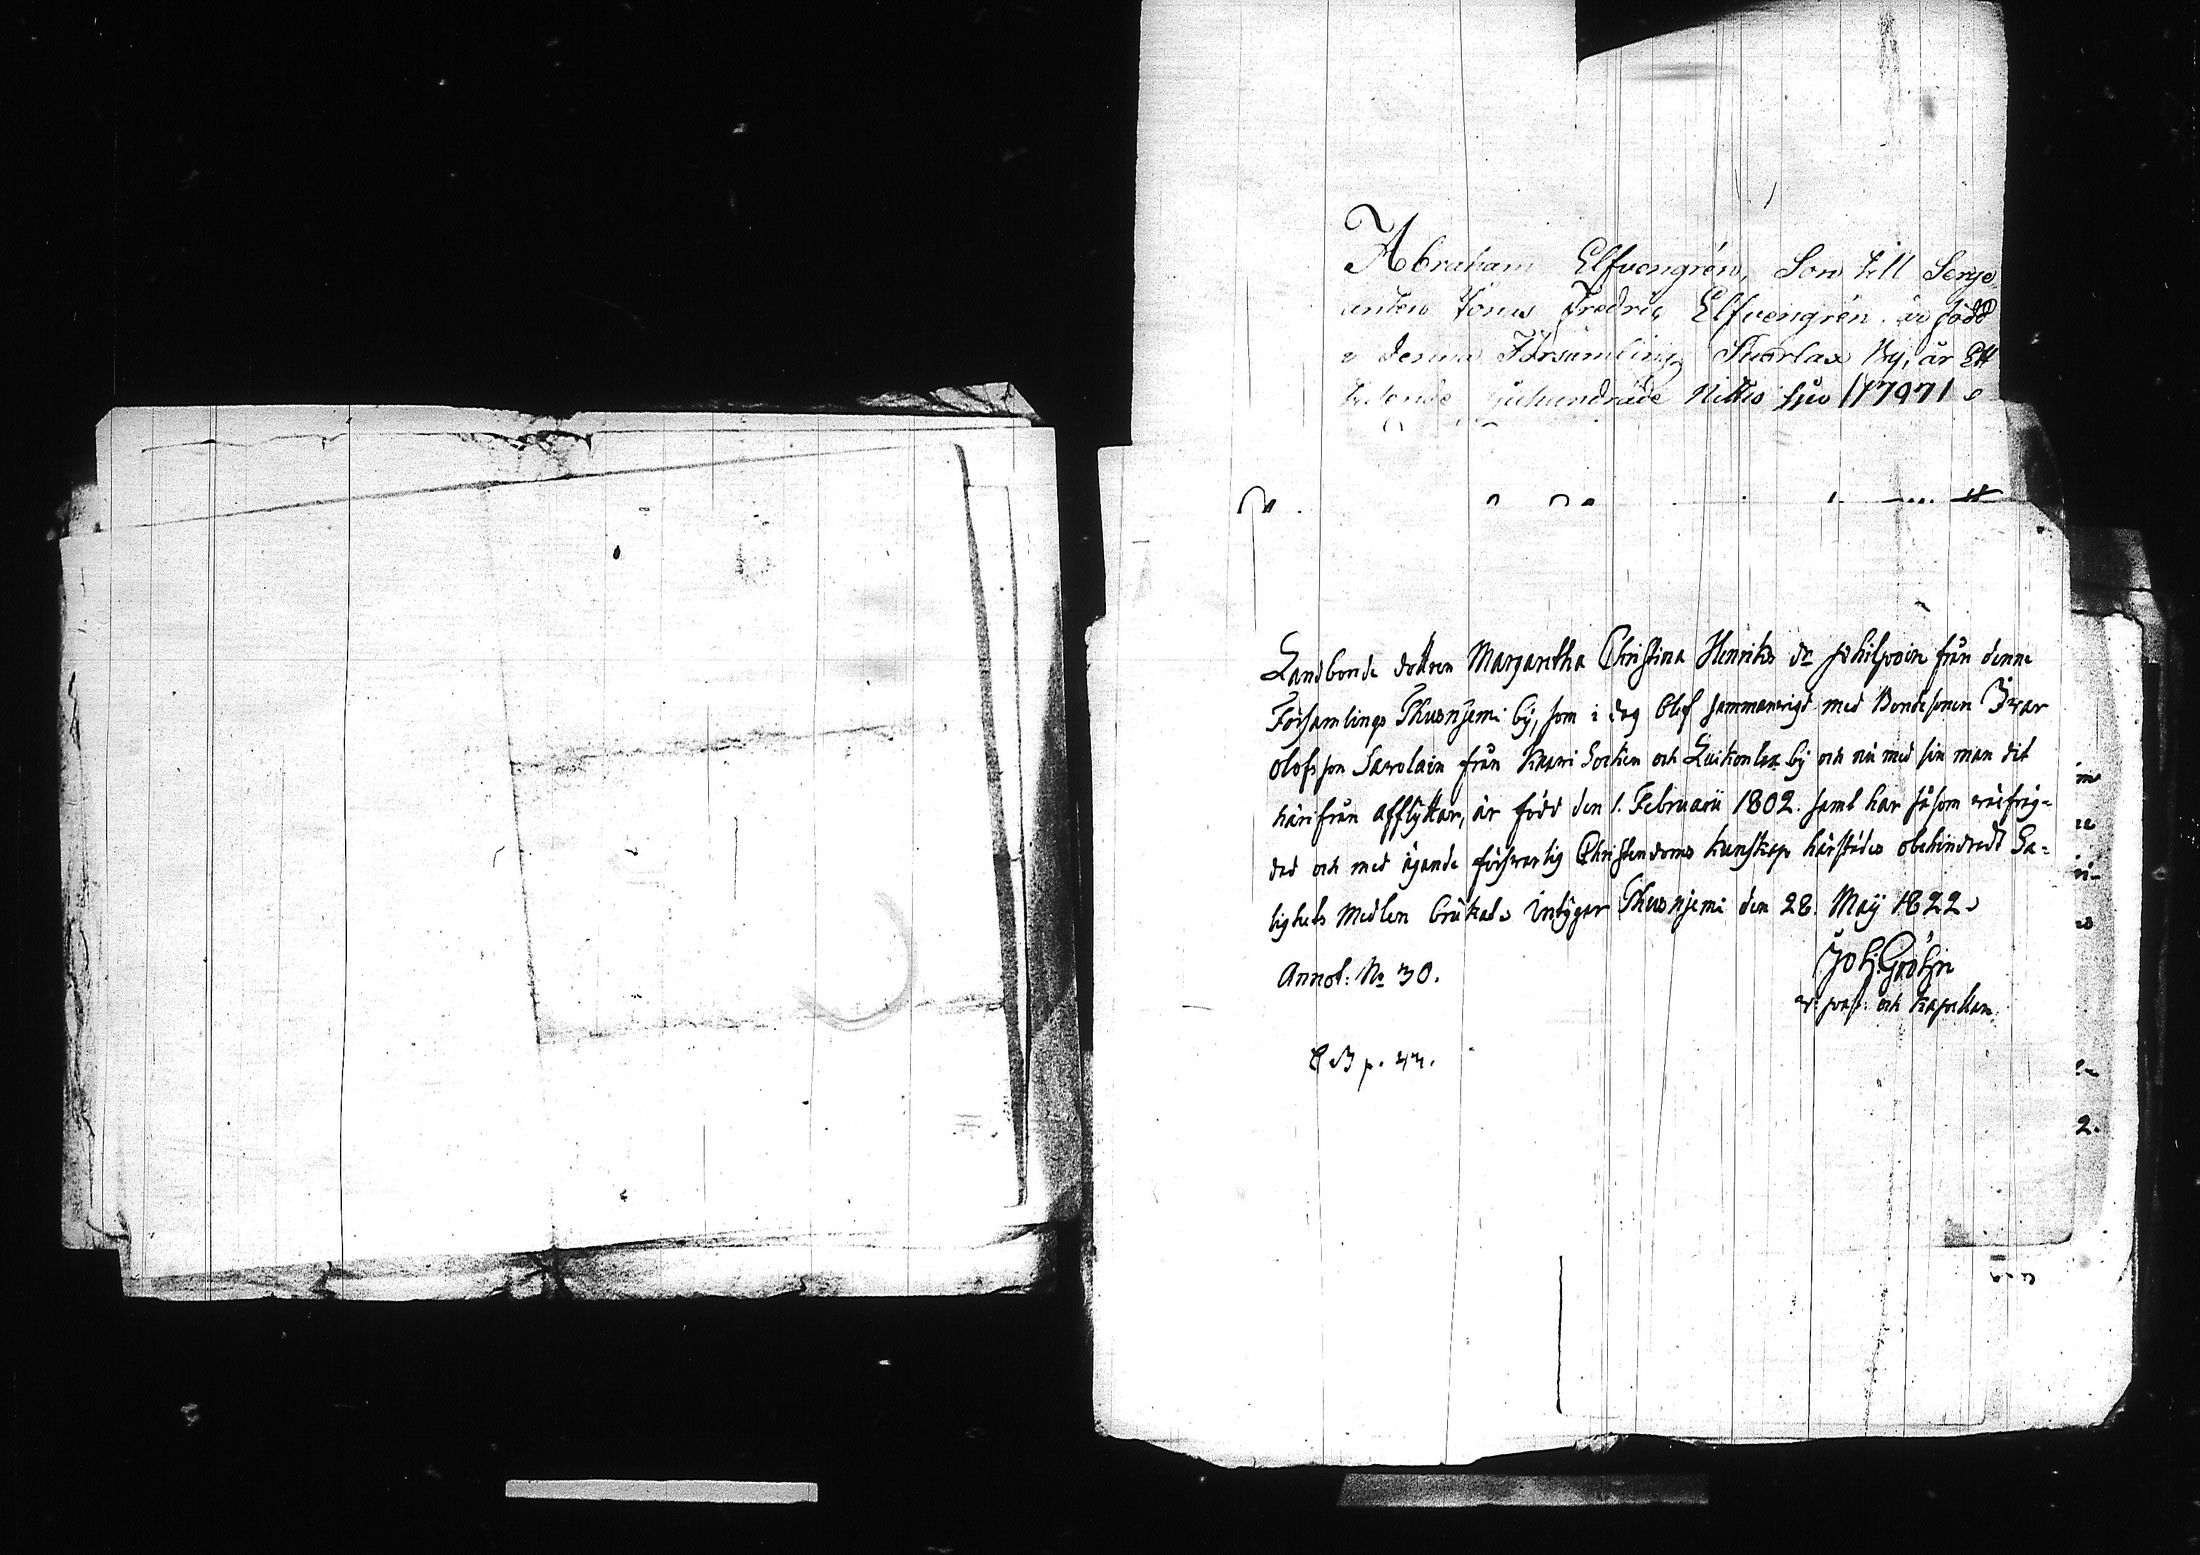 Abraham Elfvengrén, Son till Serge
anten Jonas Fredric Elfvengrén, är född
i denna Församling Suarlax By, år Ett
tusende sjuhundrade Nittio sju 1797
Landbonde dottren Margaretha Christina Henriks dr från denne
Församlings Thusnjemi by, som i dag blef sammanvigd med Bondesonen Ivar
Olofsson Savolain från Kaavi Socken och by och nu med sin man dit
härifrån afflyttar, är född den 1. Februarii 1802. samt har såsom väl fräg-
dad och med ägande försvarlig Christendoms kunskap härstädes obehindradt Sa-
lighets Medlen brukat. Intygar Thusnjemi den 28. Maji 1822.
Annot: No 30.
Joh: Gröhn
v. past. och Kapellan.
C B p. 43.
2.